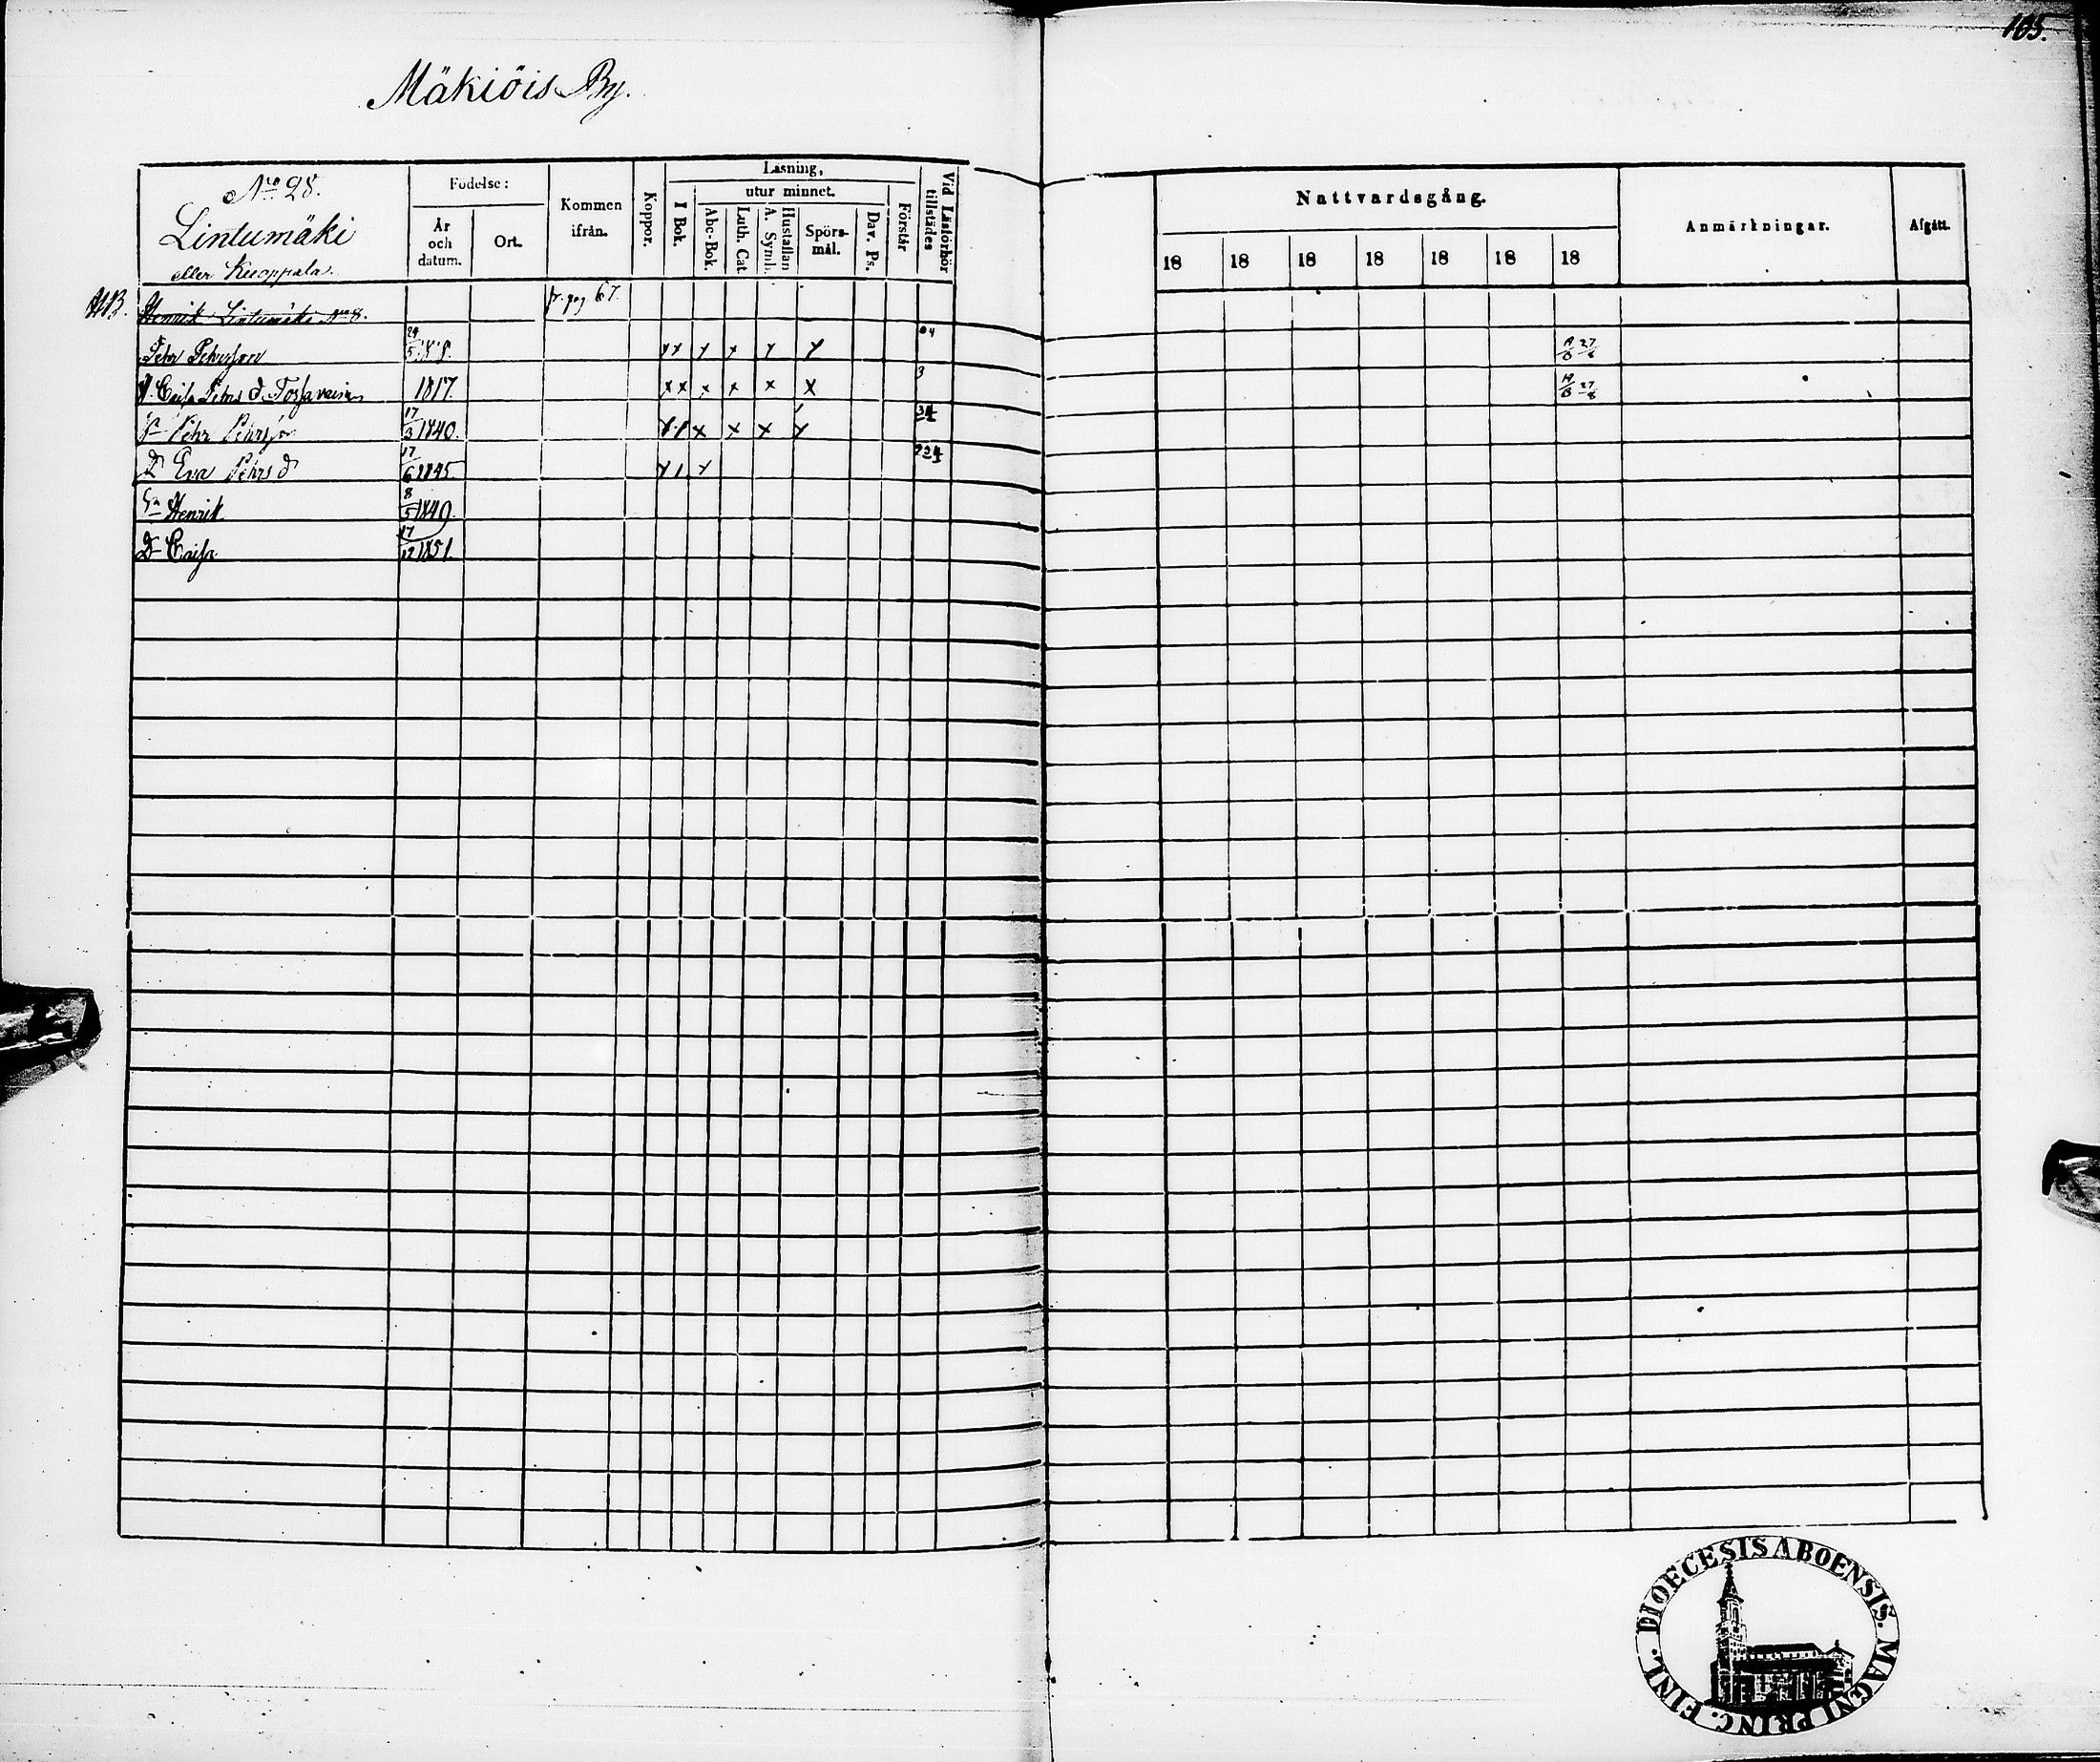 105.
Mäkiöis By.
No 28.
Lintumäki
eller Kuoppala.
Födelse:
År och datum.
Ort.
Kommen ifrån.
Koppor.
Läsning,
I Bok.
utur minnet.
Abc-Bok.
Luth. Cat.
A. Symb.
Hustaflan
Spörs-mål.
Dav. Ps.
Förstår
Vid Läsförhör tillstädes
Nattvardsgång.
18 18 18 18 18 18 18
Anmärkningar.
Afgått.
Henrik Lintumäki No 8. fr. pag 67.
Pehr Pehrsson 29/5
Caisa Pehrs d. 1817.
Sn Pehr Pehrsson 17/3 1840.
D Eva Pehrs d 17/6 1845.
Sn Henrik 8/5 1849.
D Caisa 17/12 1851.
DIOECESIS ABOENSIS. MAGNI PRINC. FINL.